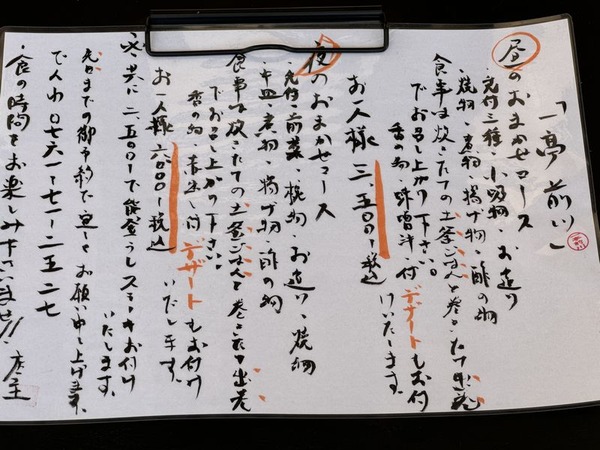 「一亭 前川」
昼のおまかせコース
・先付三種・小吸物・お造り
・焼物・煮物・揚げ物・酢の物
食事は炊きたての土釜ごはんと巻きたて出巻
でお召し上がり下さい。
香の物 味噌汁・付 デザートもお付けいたします。
お一人様 三、五〇〇- 税込
夜のおまかせコース
・先付・前菜・椀物・お造り・焼物
・中皿・煮物・揚げ物・酢の物
食事は炊きたての土釜ごはんと巻きたて出巻
でお召し上がり下さい
香の物 赤出し付 デザートもお付け
いたします。
お一人様 六〇〇〇- 税込
共に二、五〇〇-で能登うしステーキお付け
いたします。
前日までの御予約で宜しくお願い申し上げます。
でんわ 〇七六一-七一-二五二七
・食の時間をお楽しみ下さいませ!! 店主